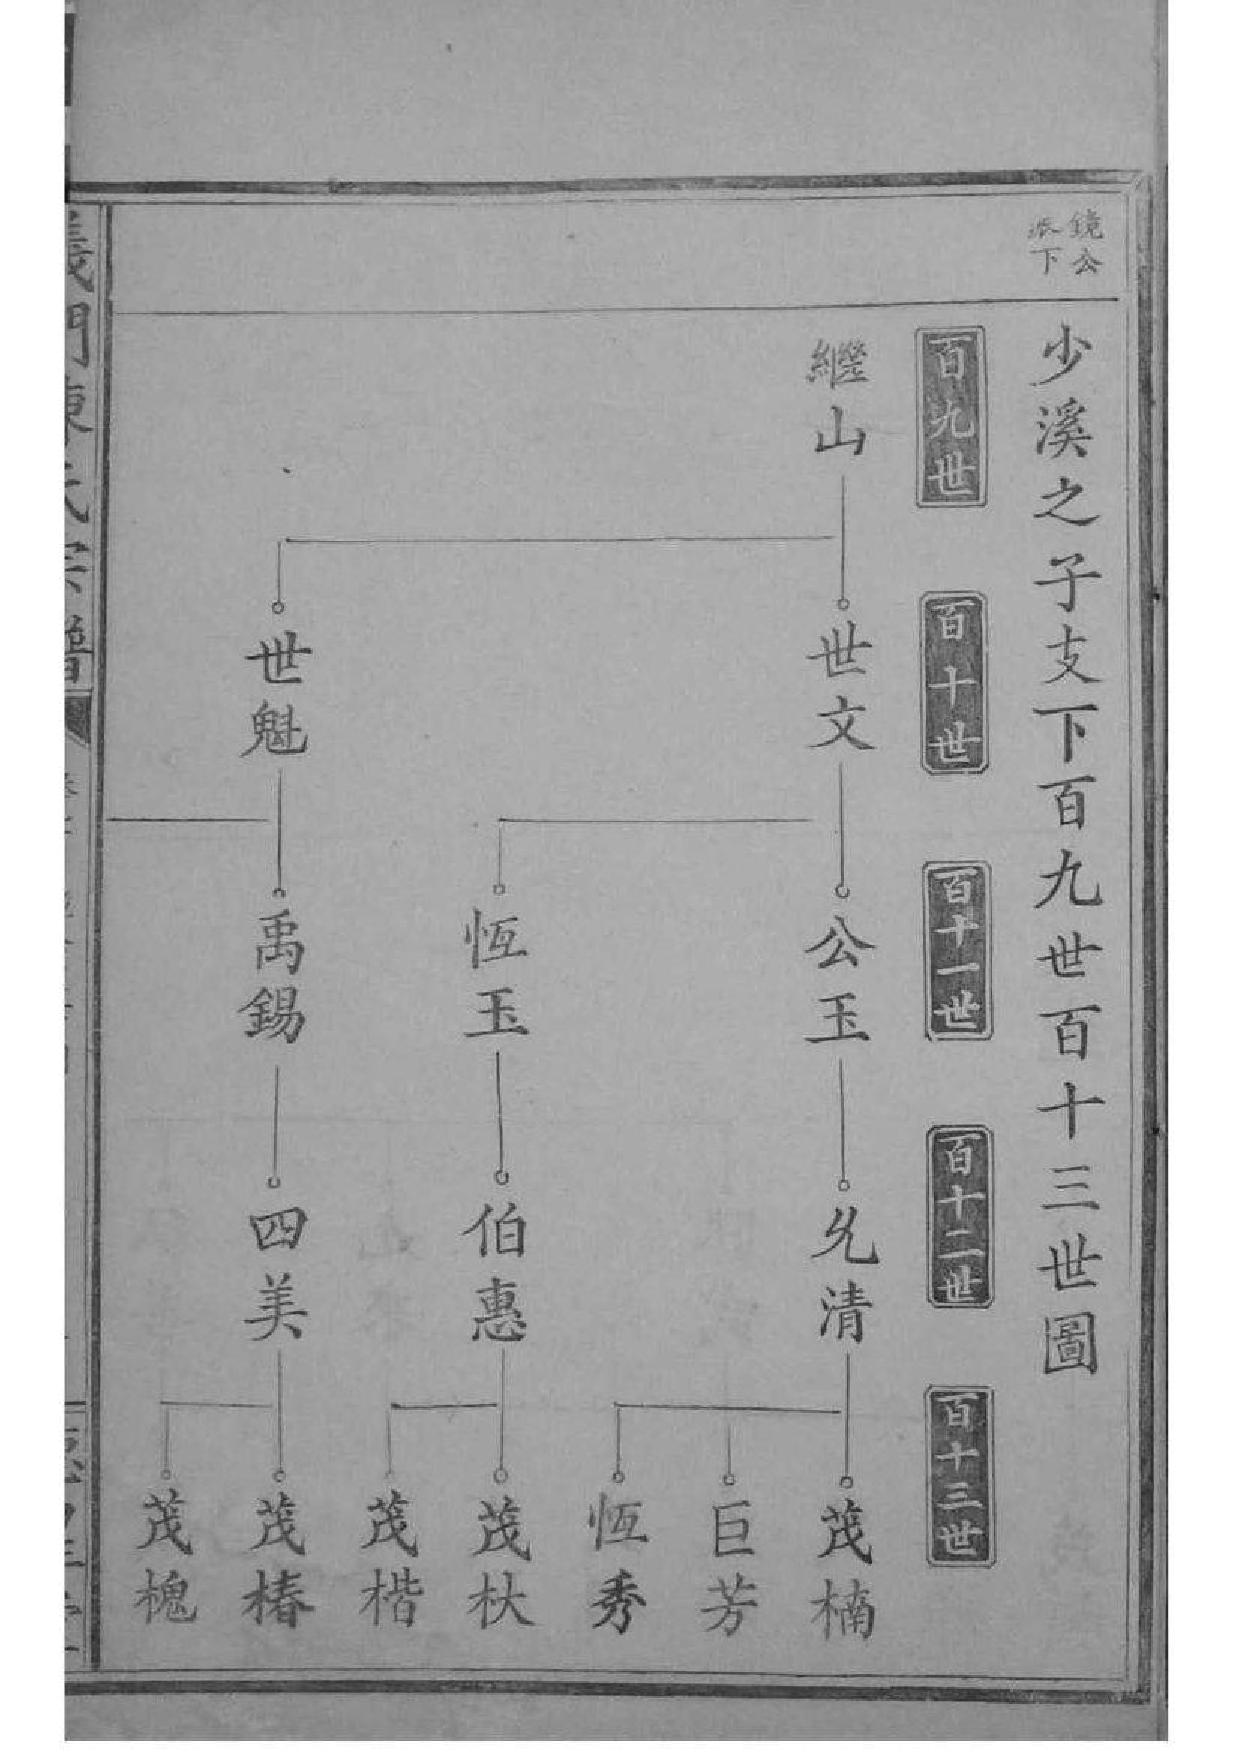 鏡公
派下
少溪之子支下百九世百十三世圖
百九世
百十世
百十一世
百十二世
百十三世
繼山
世文
世魁
公玉
恆玉
禹錫
允清
伯惠
四美
茂楠
巨芳
恆秀
茂杕
茂楷
茂椿
茂槐
義門陳氏宗譜